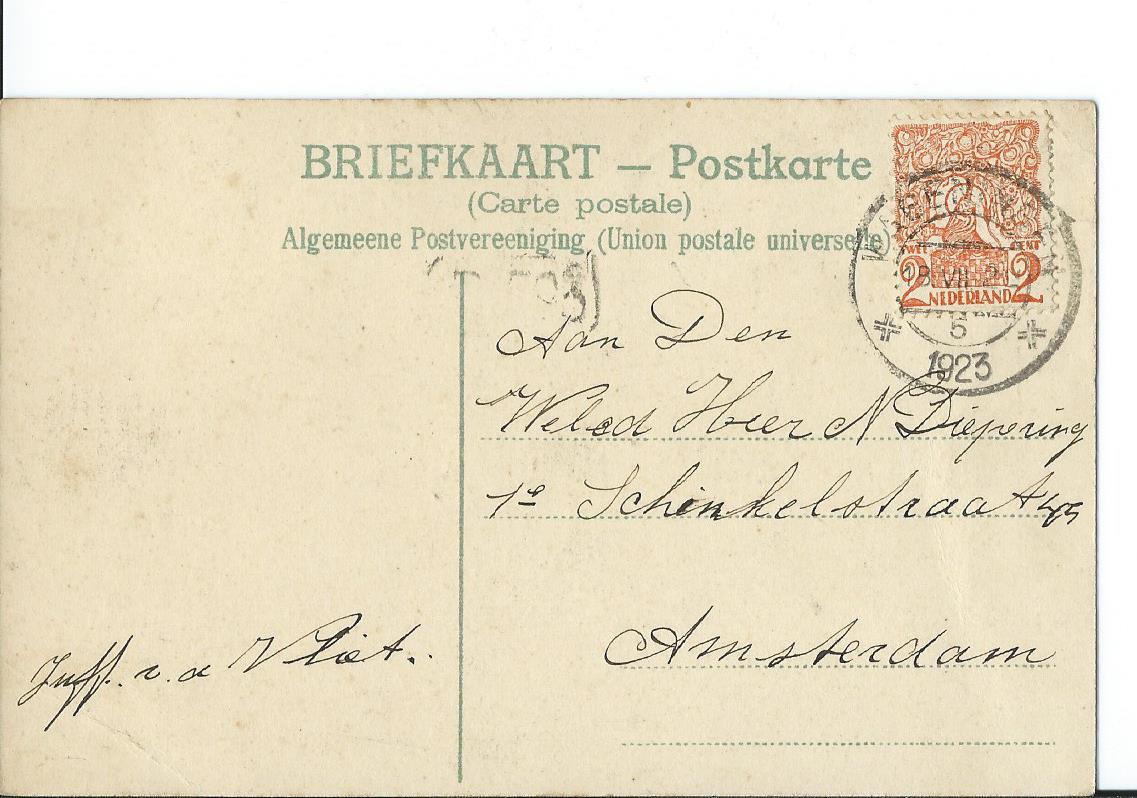 BRIEFKAART — Postkarte
(Carte postale)
Algemeene Postvereeniging (Union postale universelle
CENT
2 NEDERLAND 2
5
1923
Aan Den
Weled Heer N Diepering
1e Schinkelstraat 49
Amsterdam
Juff. v. d Vliet.